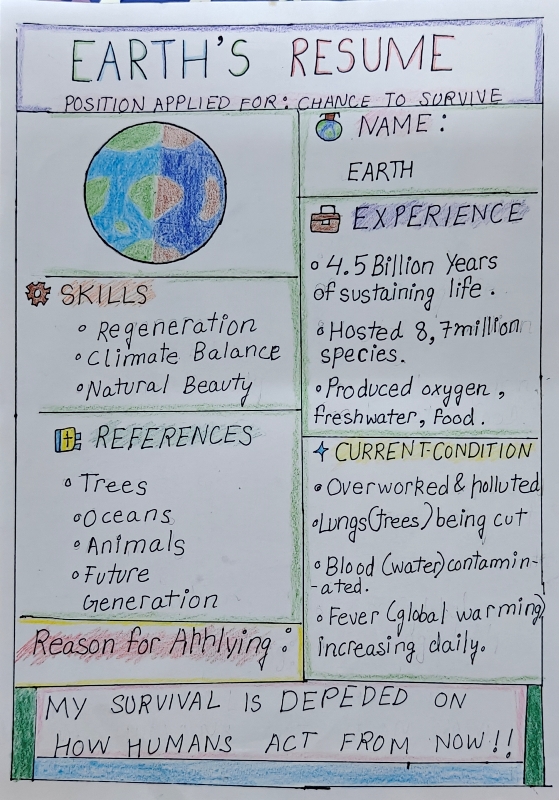 EARTH'S RESUME
POSITION APPLIED FOR: CHANCE TO SURVIVE
NAME:
EARTH
EXPERIENCE
4.5 Billion Years
of sustaining life.
Hosted 8,7million
species.
Produced oxygen,
freshwater, food.
SKILLS
Regeneration
Climate Balance
Natural Beauty
REFERENCES
Trees
Oceans
Animals
Future
Generation
CURRENT-CONDITION
Overworked & polluted
Lungs(trees) being cut
Blood (water)contamin-
-ated.
Fever (global warming)
increasing daily.
Reason for Applying:
MY SURVIVAL IS DEPEDED ON
HOW HUMANS ACT FROM NOW!!